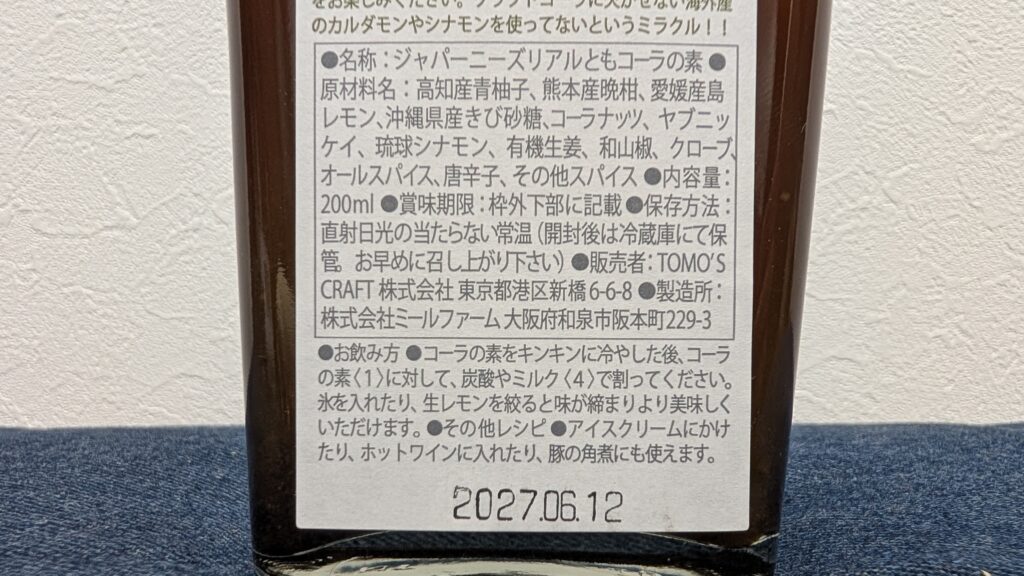 をお楽しみください。クラフトコーラに欠かせない海外産
のカルダモンやシナモンを使ってないというミラクル！！
●名称：ジャパーニーズリアルともコーラの素 ●
原材料名：高知産青柚子、熊本産晩柑、愛媛産島
レモン、沖縄県産きび砂糖、コーラナッツ、ヤブニッ
ケイ、琉球シナモン、有機生姜、和山椒、クローブ、
オールスパイス、唐辛子、その他スパイス ●内容量：
200ml ●賞味期限：枠外下部に記載 ●保存方法：
直射日光の当たらない常温（開封後は冷蔵庫にて保
管。お早めに召し上がり下さい）●販売者：TOMO'S
CRAFT 株式会社 東京都港区新橋 6-6-8 ●製造所：
株式会社ミールファーム 大阪府和泉市阪本町229-3
●お飲み方 ●コーラの素をキンキンに冷やした後、コーラ
の素〈1〉に対して、炭酸やミルク〈4〉で割ってください。
氷を入れたり、生レモンを絞ると味が締まりより美味しく
いただけます。●その他レシピ ●アイスクリームにかけ
たり、ホットワインに入れたり、豚の角煮にも使えます。
2027.06.12